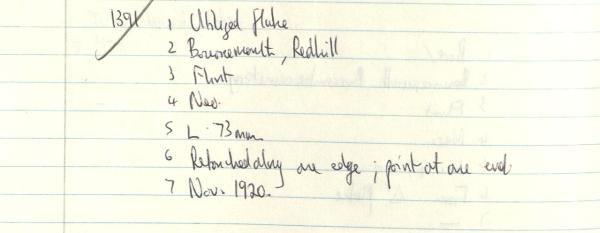 1391 1 Utilized flake
2 Bournemouth, Redhill
3 Flint
4 Neo.
5 L. 73mm
6 Retouched along one edge; point at one end.
7 Nov. 1920.